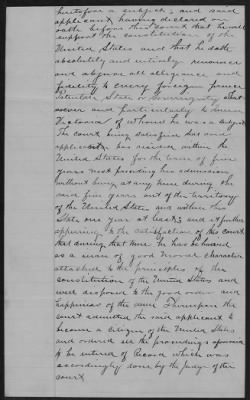 heretofore a subject; and said
applicant having declared on
oath before this Court that he will
support the constitution of the
United States and that he doth
absolutely and entirely renounce
and abjure all allegiance and
fidelity to every foreign prince
Potentate State or Sovereignty what
soever and particularly to
Victoria of whom he was a subject
The court being satisfied that said
applicant has resided within the
United States for the term of five
years next preceding his admission
without being at any time during the
said five years out of the territory
of the United States and within this
State one year at least; and it further
appearing to the satisfaction of this court
that during that time he has behaved
as a man of good moral character
attached to the principles of the
constitution of the United States and
well disposed to the good order and
happiness of the same Thereupon the
court admitted the said applicant to
become a citizen of the United States
and ordered all the proceedings aforesaid
to be entered of Record which was
accordingly done by the Judge of the
court